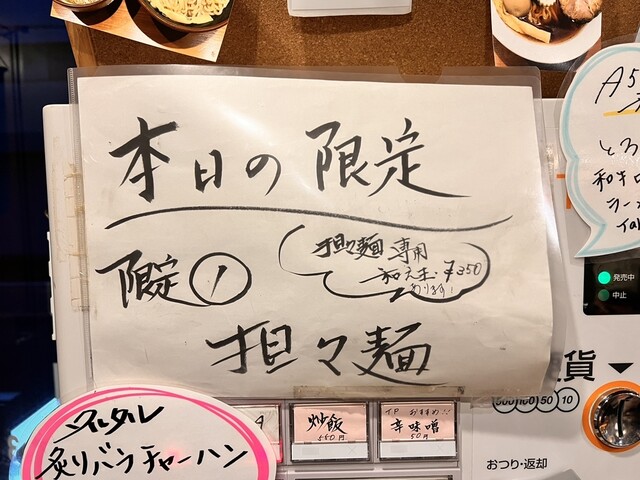 本日の限定
限定①
担々麺 専用
和え玉 ¥350
あります!
担々麺
A5
とろ
和牛
ラー
発売中
中止
貨
500 100 50 10
おつり・返却
炒飯
550円
イチおすすめ!!
辛味噌
50円
炙りバラチャーハン